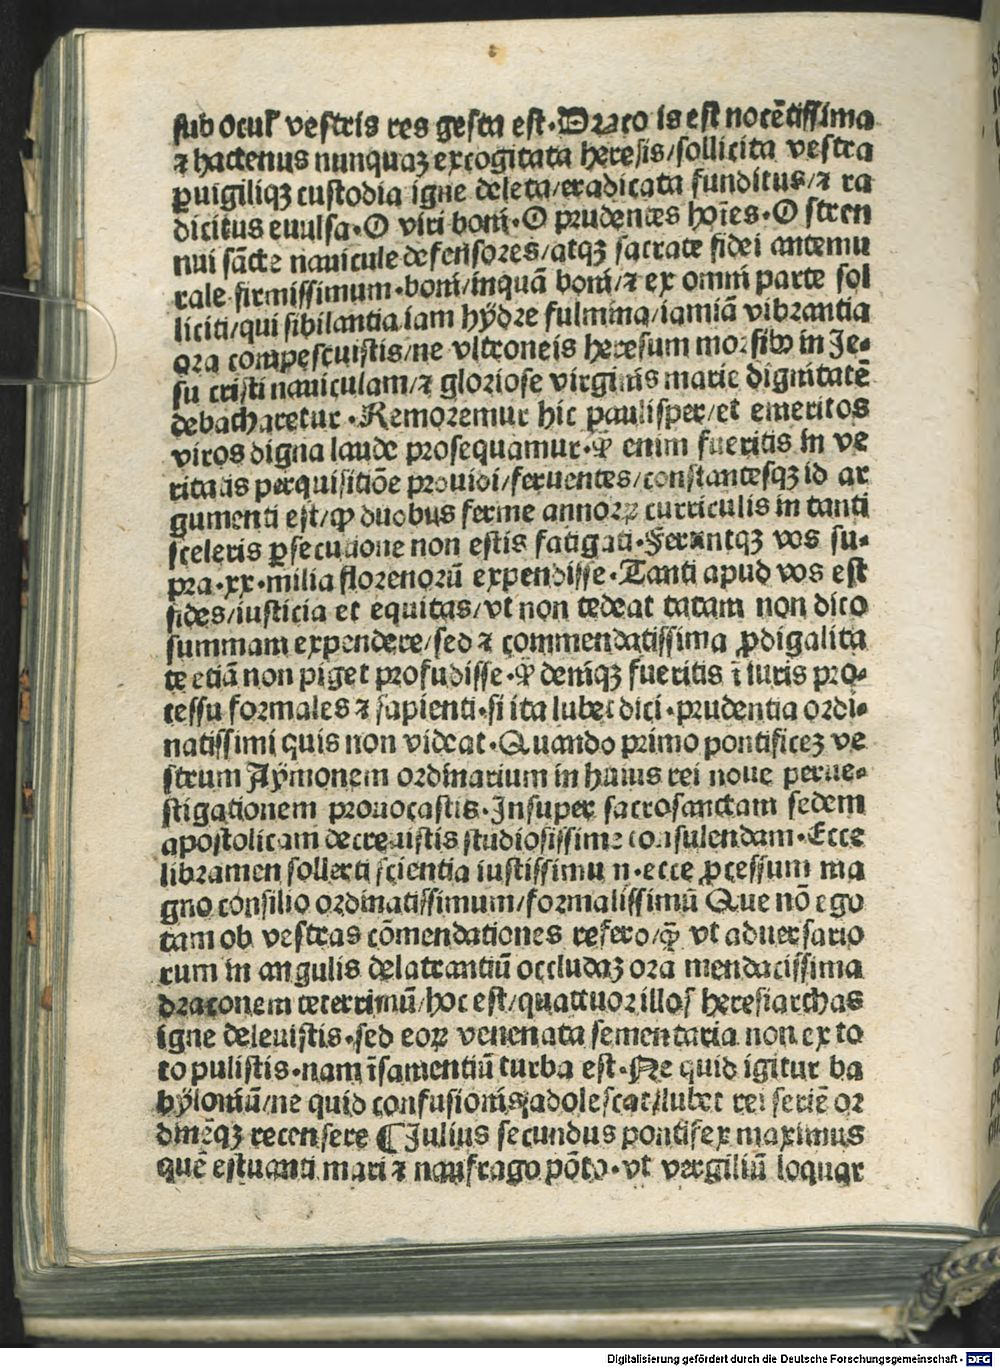 sub oculꝭ vestris res gesta est·Draco is est nocētissima
⁊ hactenus nunquaꝫ excogitata heresis/sollicita vestra
ꝑuigiliqꝫ custodia igne deleta/eradicata funditus/⁊ ra
dicitus euulsa·O viri boni·O prudentes hoīes·O stren
nui sācte nauicule defensores/atqꝫ sacrate fidei antemu
rale firmissimum·boni/inquā boni/⁊ ex omni parte sol
liciti/qui sibilantia iam hydre fulmina/iamiā vibrantia
ora compescuistis/ne vltroneis heresum morsibꝰ in Je-
su cristi nauiculam/⁊ gloriose virginis marie dignitatē
debacharetur·Remoremur hic paulisper/et emeritos
viros digna laude prosequamur·ꝙ enim fueritis in ve
ritatis perquisitiōe prouidi/feruentes/constantesqꝫ id ar
gumenti est/ꝙ duobus ferme annoꝝ curriculis in tanti
sceleris ꝑsecutione non estis fatigati·Feruntqꝫ vos su-
pra·xx·milia florenorū expendisse·Tanti apud vos est
fides/iusticia et equitas/vt non tedeat tatam non dico
summam expendere/sed ⁊ commendatissima ꝓdigalita
te etiā non piget profudisse·ꝙ deniqꝫ fueritis ī iuris pro-
cessu formales ⁊ sapienti·si ita lubet dici·prudentia ordi-
natissimi quis non videat·Quando primo pontificeꝫ ve
strum Aymonem ordinarium in huius rei noue perue-
stigationem prouocastis·Insuper sacrosanctam sedem
apostolicam decreuistis studiosissime consulendam·Ecce
libramen sollerti scientia iustissimum·ecce ꝓcessum ma
gno consilio ordinatissimum/formalissimū Que nō ego
tam ob vestras cōmendationes refero/ꝙ̄ vt aduersario
rum in angulis delatrantiū occludaꝫ ora mendacissima
draconem teterrimū/hoc est/quattuor illos heresiarchas
igne deleuistis·sed eoꝝ venenata sementaria non ex to
to pulistis·nam īsamentiū turba est·Ne quid igitur ba
byloniū/ne quid confusionis adolescat/lubet rei seriē or
dinēqꝫ recensere ¶Julius secundus pontifex maximus
quē estuanti mari ⁊ naufrago pōto·vt vergiliū loquar
Digitalisierung gefördert durch die Deutsche Forschungsgemeinschaft - DFG